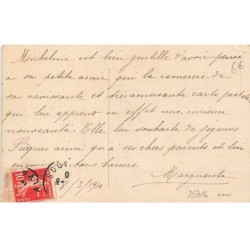 Micheline est bien gentille d'avoir pensé
à sa petite amie qui la remercie de
sa ravissante et très amusante carte postale
qui lui apprend en effet une curieuse
nouveauté. Elle lui souhaite de joyeuses
Pâques ainsi qu'à ses chers parents et
bons baisers.
Marguerite
/3/1910